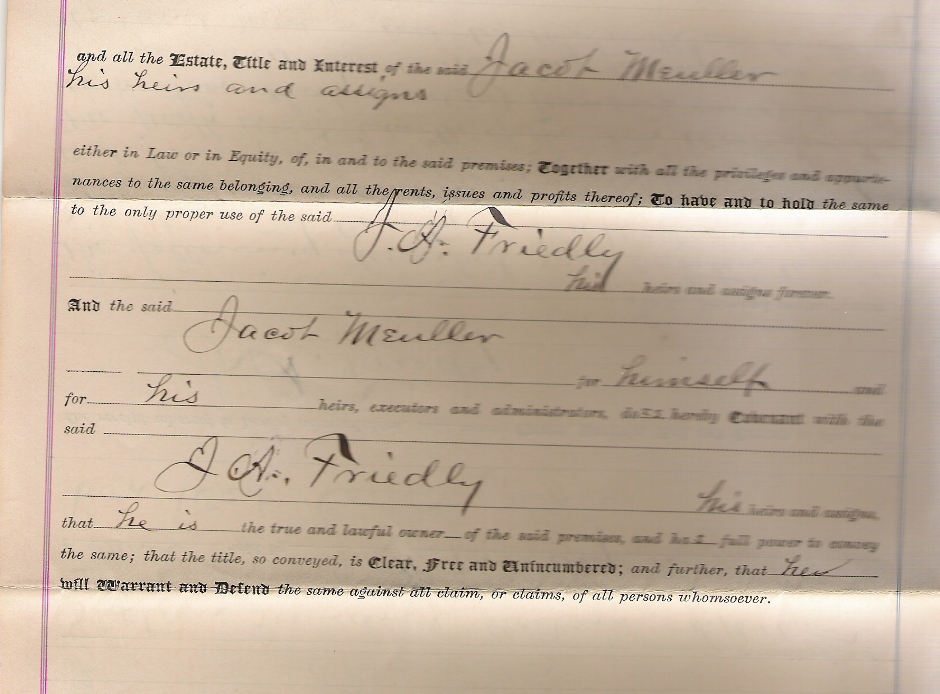 and all the Estate, Title and Interest of the said Jacob Meuller
his heirs and assigns
either in Law or in Equity, of, in and to the said premises; Together with all the privileges and appurte-
nances to the same belonging, and all the rents, issues and profits thereof; To have and to hold the same
to the only proper use of the said
J. A. Friedly
his heirs and assigns forever.
And the said
Jacob Meuller
for himself and
for his heirs, executors and administrators, does hereby Covenant with the
said
J. A. Friedly
his heirs and assigns,
that he is the true and lawful owner of the said premises, and has full power to convey
the same; that the title, so conveyed, is Clear, Free and Unincumbered; and further, that he
will Warrant and Defend the same against all claim, or claims, of all persons whomsoever.